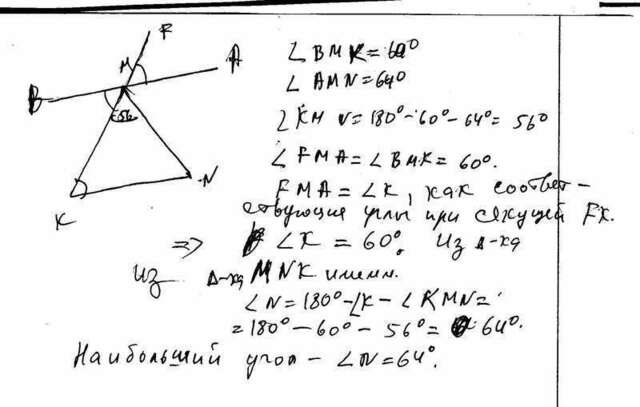 F
M
A
B
56
N
K
∠BMK = 60°
∠AMN = 64°
∠KMN = 180° - 60° - 64° = 56°
∠FMA = ∠BMK = 60°.
FMA = ∠K, как соответ-
ствующие углы при секущей FK.
=> ∠K = 60°. Из Δ-ка
Из Δ-ка MNK имеем.
∠N = 180° - ∠K - ∠KMN =
= 180° - 60° - 56° = 64°.
Наибольший угол - ∠N = 64°.